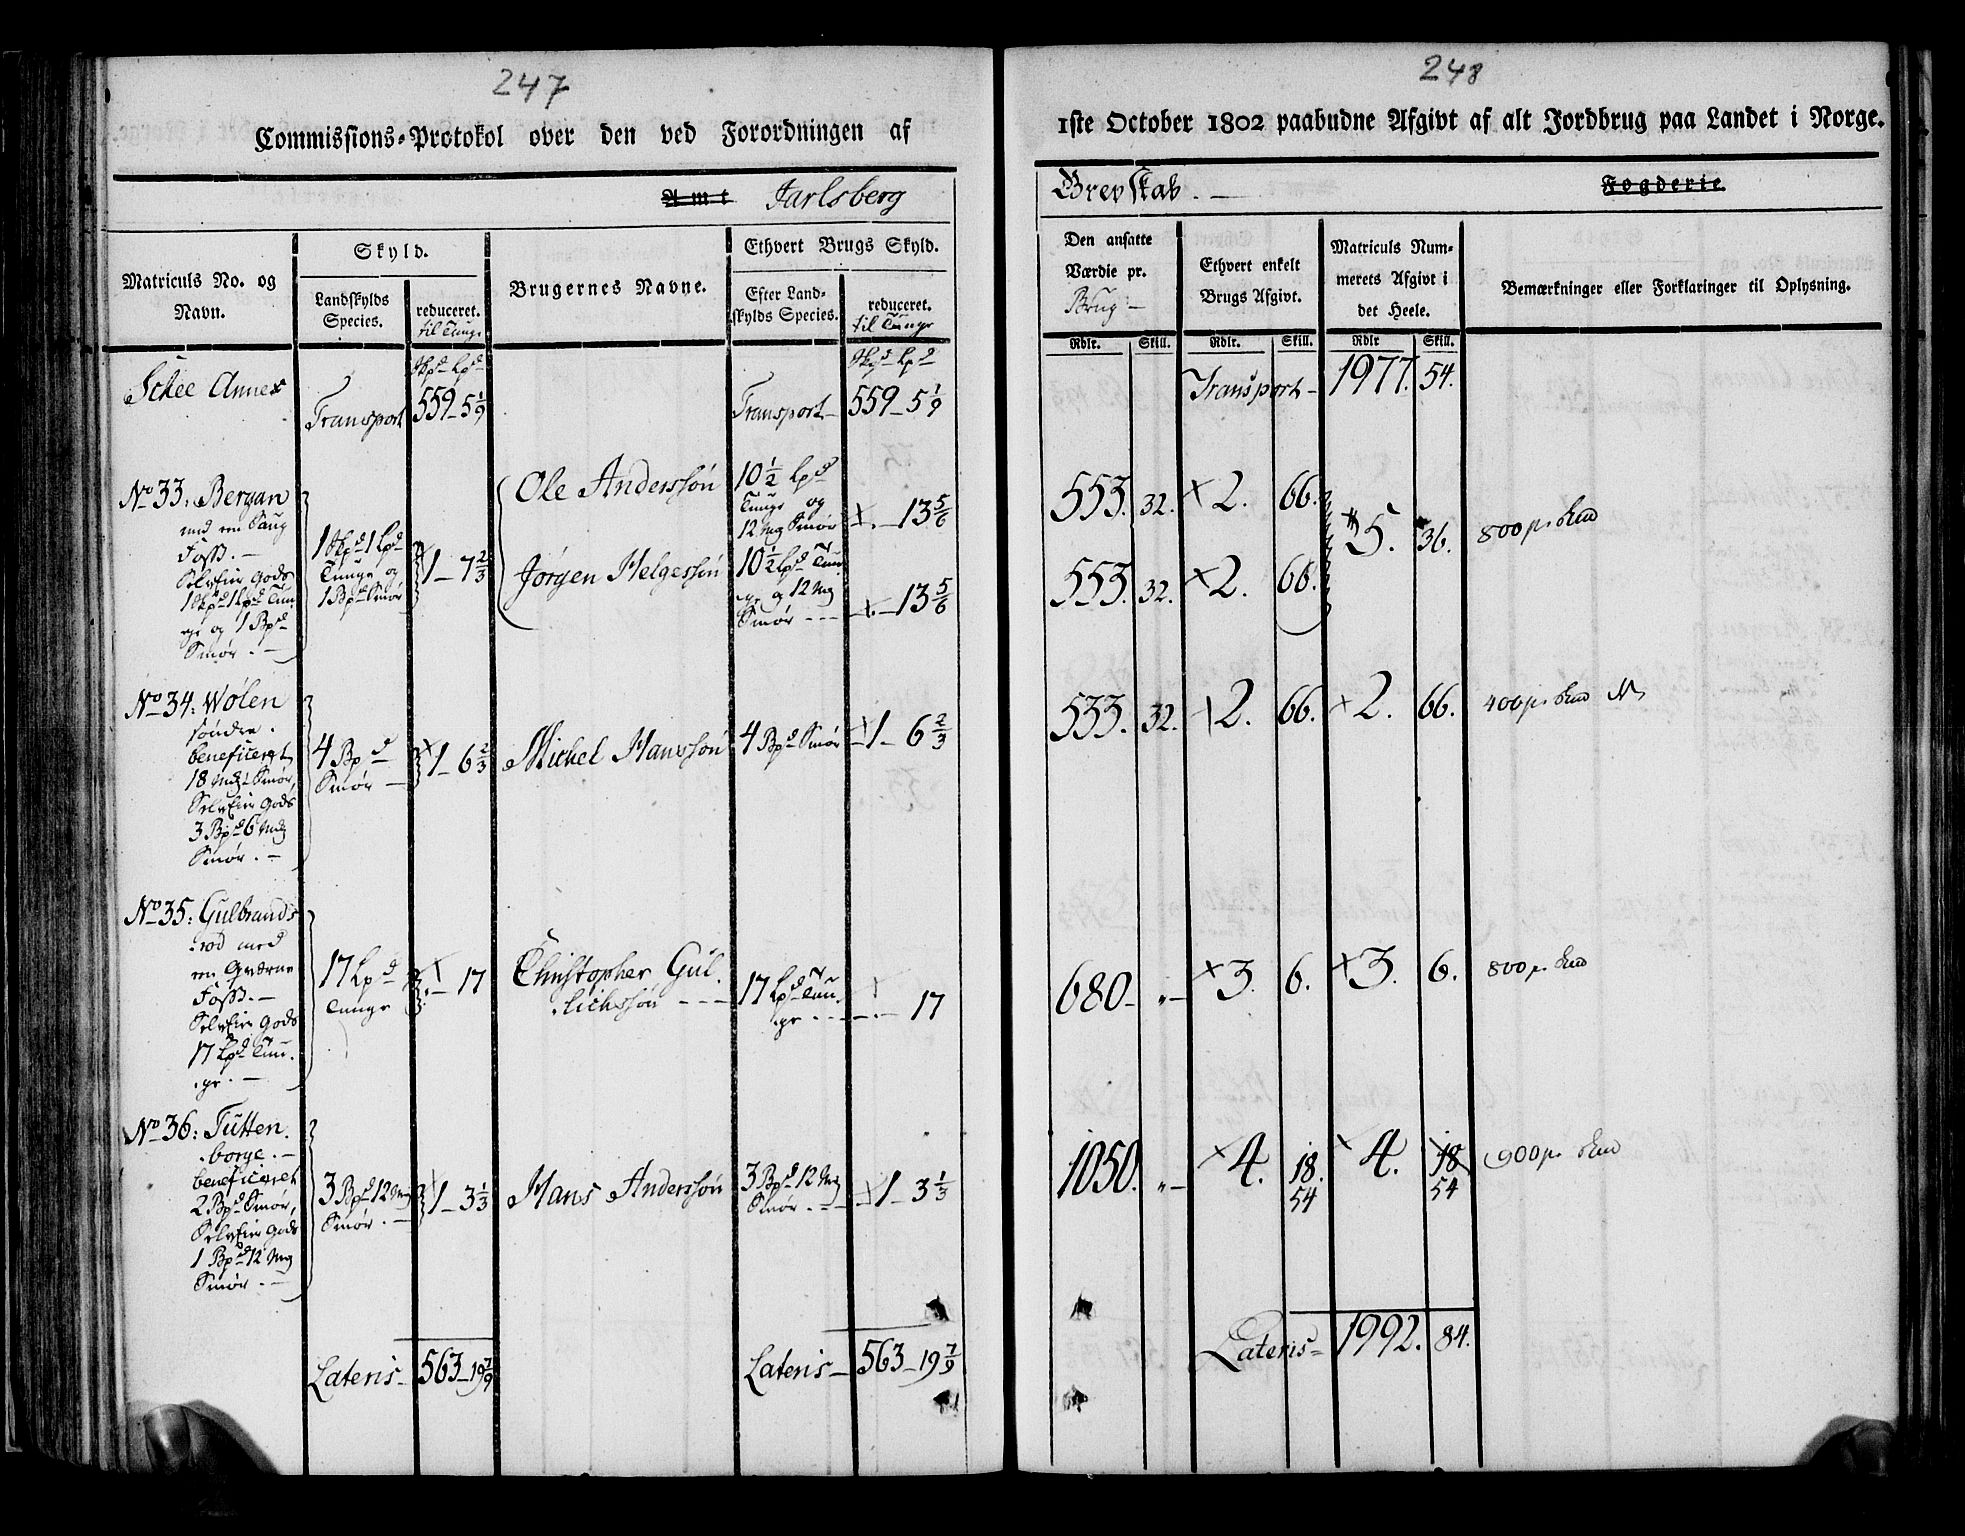 247
Commissions-Protokol over den ved Forordningen af
Amt Jarlsberg
Matriculs No. og Navn.
Skyld.
Landskylds Species.
reduceret.
til Tunge
Brugernes Navne.
Ethvert Brugs Skyld.
Efter Landskylds Species.
reduceret.
til Tunge
Skee Annex
Transport
Skpd Lpd
559 - 5 1/9
Transport
Skpd Lpd
559 - 5 1/9
No 33. Bergan
med en Saug
Foss. -
SelvEier Gods
1 Skpd 1 Lpd Tun
ge og 1 Bpd
Smør. -
1 Skpd 1 Lpd
Tunge og
1 Bpd Smør
1 - 7 2/3
Ole Anderssøn
10 1/2 Lpd
Tunge og
12 Mg Smør
- 13 5/6
Jørgen Helgessøn
10 1/2 Lpd Tun
ge og 12 Mg
Smør - - -
- 13 5/6
No 34: Wølen
søndre.
beneficeret
18 Mg Smør,
SelvEier Gods
3 Bpd 6 Mg
Smør. -
4 Bpd
Smør -
1 - 6 2/3
Michel Hanssøn
4 Bpd Smør
1 - 6 2/3
No 35: Gulbrands
rød med
en Qværne
Foss. -
SelvEier Gods
17 Lpd Tun.
ge. -
17 Lpd
Tunge
- 17
Christopher Gul.
lichssøn - - -
17 Lpd Tun.
ge - - -
- 17
No 36: Tutten.
borge. -
beneficeret
2 Bpd Smør,
SelvEier Gods
1 Bpd 12 Mg
Smør. -
3 Bpd 12 Mg
Smør. -
1 - 3 1/3
Hans Anderssøn
3 Bpd 12 Mg
Smør. - -
1 - 3 1/3
Lateris -
563 - 19 7/9
Lateris -
563 - 19 7/9
248
1ste October 1802 paabudne Afgivt af alt Jordbrug paa Landet i Norge.
Grevskab. -
Fogderie.
Den ansatte Værdie pr.
Brug -
Ethvert enkelt Brugs Afgivt.
Matriculs Nummerets Afgivt i det Heele.
Bemærkninger eller Forklaringer til Oplysning.
Rdlr. Skill. Rdlr. Skill. Rdlr Skill.
Transport - 1977. 54.
553. 32. 2. 66.
5. 36. 800
553. 32. 2. 66.
533. 32. 2. 66. 2. 66. 400
680 - " - 3. 6. 3. 6. 800
1050. " - 4. 18. 4. 18 900
54 54
Lateris - 1992. 84.